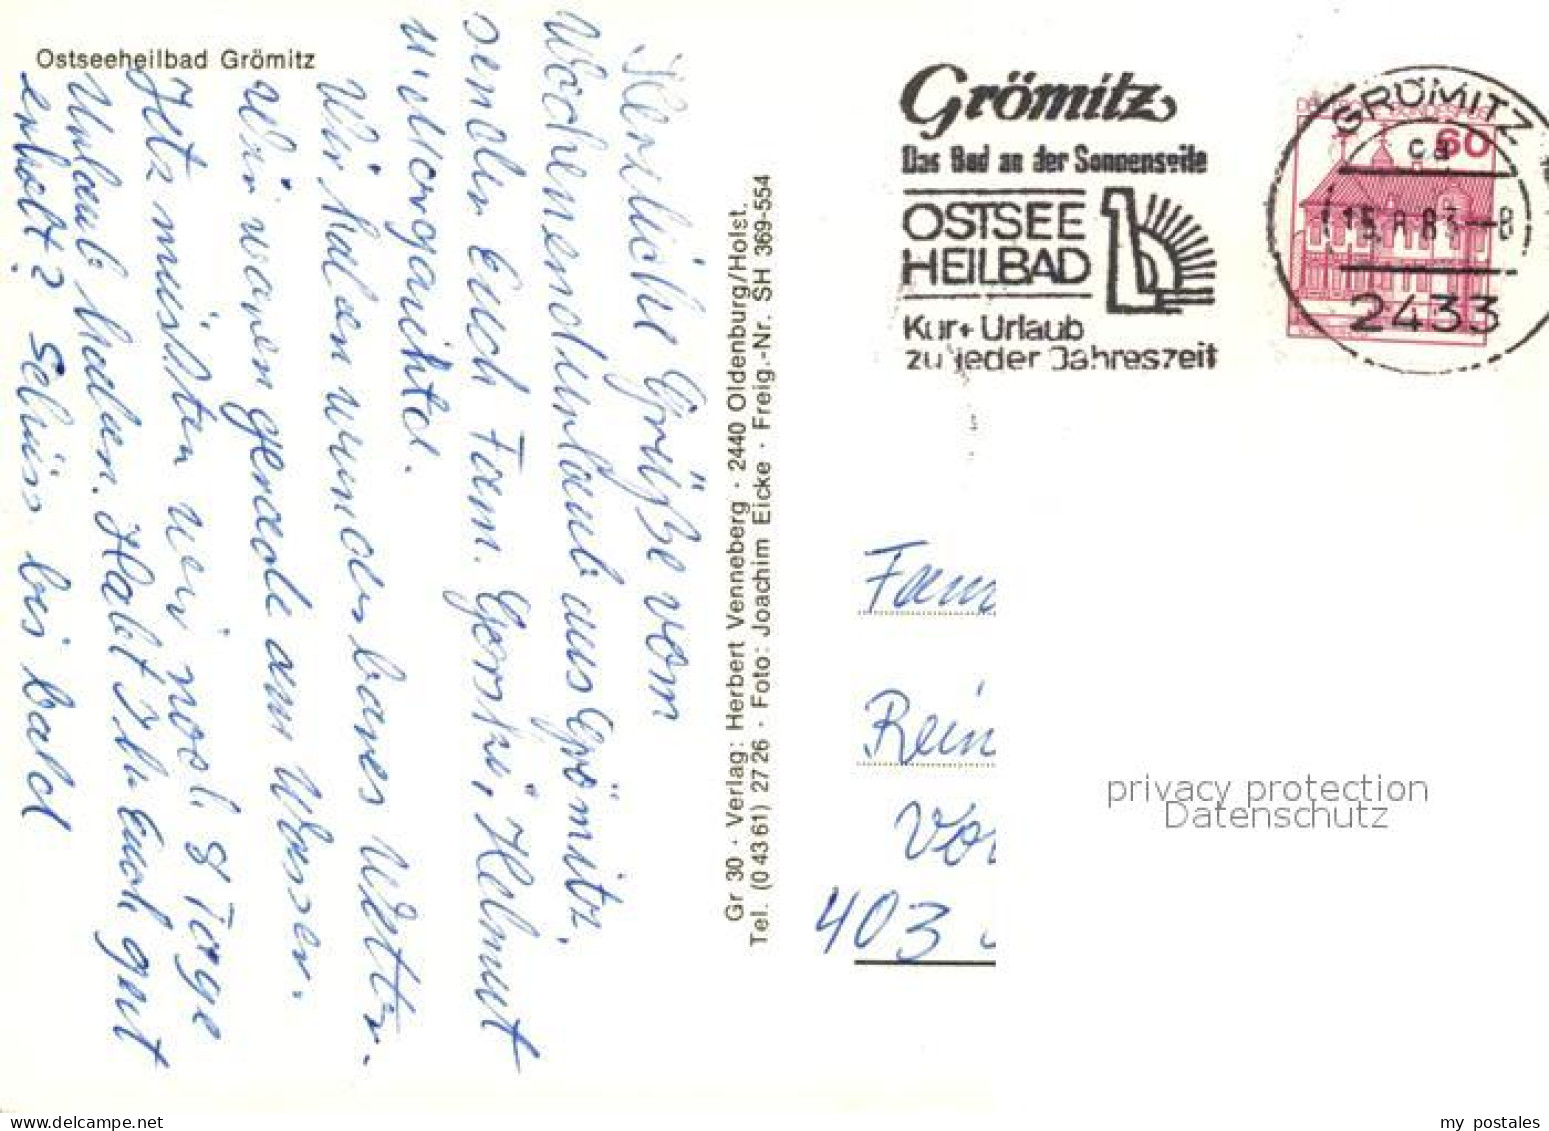 Ostseeheilbad Grömitz
Herzliche Grüße vom
Wochenendurlaub aus Grömitz,
senden Euch Fam. Gorski, Helmut
u. Morgaritta.
Wir haben wunderbares Wetter.
Wir waren gerade am Wasser.
Jetz müssten wir noch 8 Tage
Urlaub haben. Habt Ihr Euch gut
erholt? Schüss bis bald
Gr 30 · Verlag: Herbert Venneberg · 2440 Oldenburg/Holst.
Tel. (0 43 61) 27 26 · Foto: Joachim Eicke · Freig.-Nr. SH 369-554
Grömitz
Das Bad an der Sonnenseite
OSTSEE
HEILBAD
Kur + Urlaub
zu jeder Jahreszeit
GRÖMITZ
60
ca
15.8.83--8
2433
Fam
Rein
Vor
403
privacy protection
Datenschutz
my postales